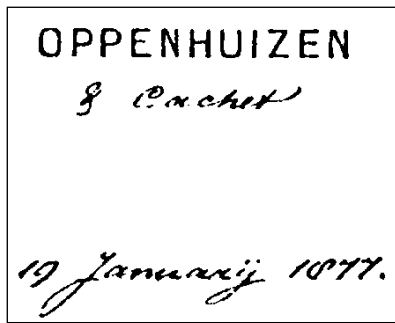 OPPENHUIZEN
& Cachet
19 Januarij 1877.